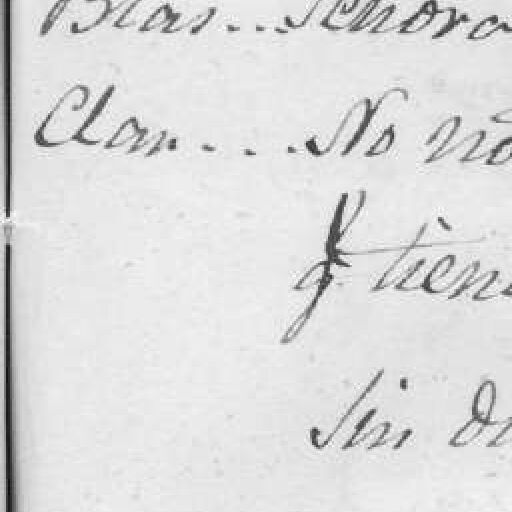 Blas... Señora
Clar.... No
q.e tiene
Sin